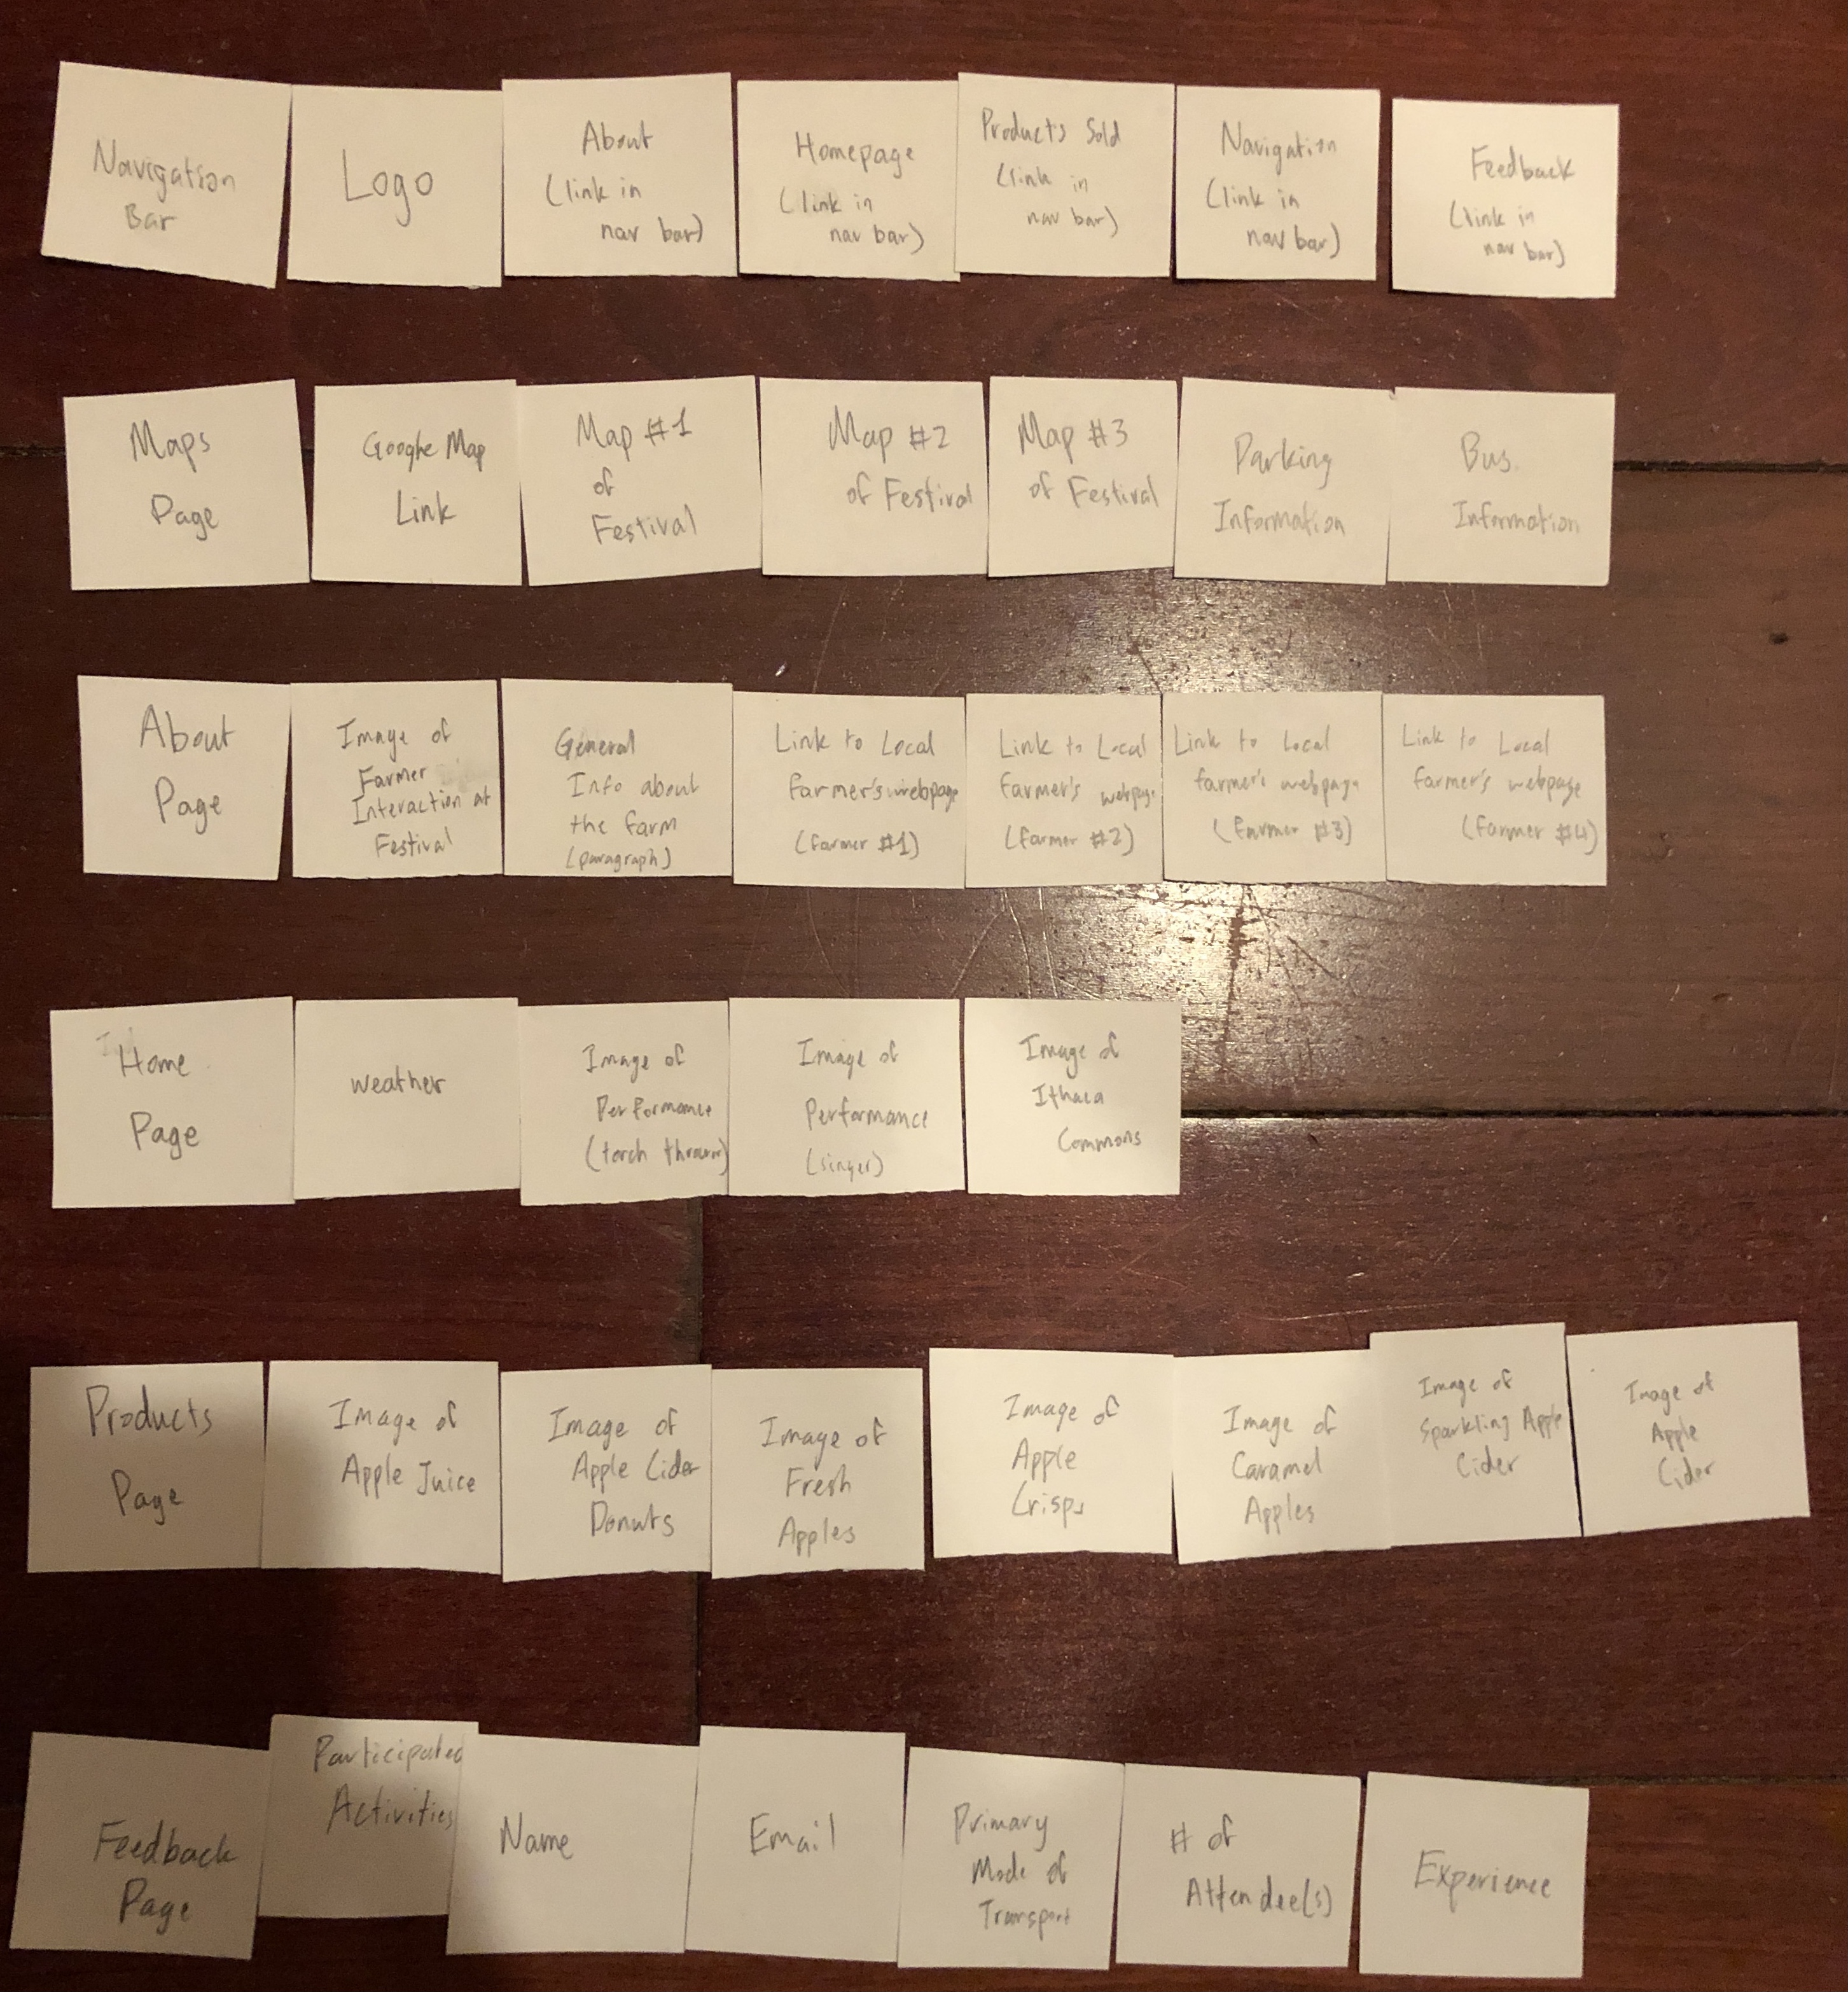 Navigation
Bar
Logo
About
(link in
nav bar)
Homepage
(link in
nav bar)
Products Sold
(link in
nav bar)
Navigation
(link in
nav bar)
Feedback
(link in
nav bar)
Maps
Page
Google Map
Link
Map #1
of
Festival
Map #2
of Festival
Map #3
of Festival
Parking
Information
Bus
Information
About
Page
Image of
Farmer
Interaction at
Festival
General
Info about
the farm
(paragraph)
Link to Local
Farmer's webpage
(Farmer #1)
Link to Local
Farmer's webpage
(Farmer #2)
Link to Local
farmer's webpage
(Farmer #3)
Link to Local
farmer's webpage
(Farmer #4)
Home
Page
weather
Image of
Performance
(torch thrower)
Image of
Performance
(singer)
Image of
Ithaca
Commons
Products
Page
Image of
Apple Juice
Image of
Apple Cider
Donuts
Image of
Fresh
Apples
Image of
Apple
Crisps
Image of
Caramel
Apples
Image of
Sparkling Apple
Cider
Image of
Apple
Cider
Feedback
Page
Participated
Activities
Name
Email
Primary
Mode of
Transport
# of
Attendee(s)
Experience